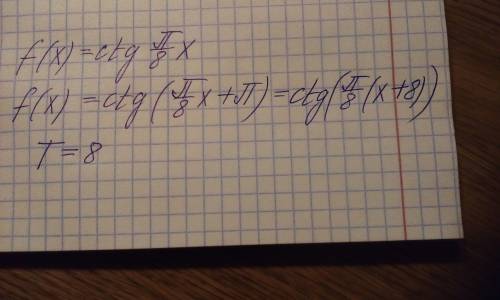 f(x) = ctg π/8 x
f(x) = ctg(π/8 x + π) = ctg(π/8 (x+8))
T = 8